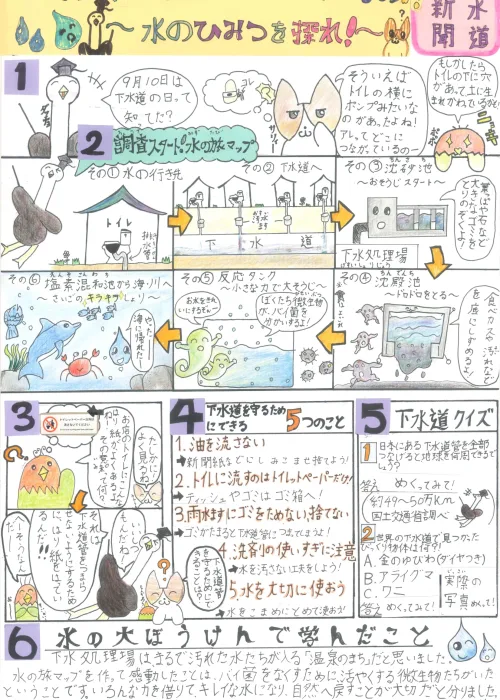 〜水のひみつを探れ!〜
水道
新聞
1
9月10日は
下水道の日って
知ってた?
そういえば
トイレの横に
ポンプみたいな
のがあったよね!
アレってどこに
つながっているの
もしかしたら
トイレの下に穴
があって土に生
まれかわっているかも!
2 調査スタート!水の旅マップ
その① 水の行き先
トイレ
排水管
その② 下水道へ
下水道
その③ 沈砂池
〜おそうじスタート〜
葉っぱや石など
大きなゴミを
とりのぞくよ!
下水処理場
その④ 沈殿池
〜ドロドロをとる〜
食べカスや汚れなど
を底にしずめるよ
その⑤ 反応タンク
〜小さな力で大そうじ〜
お水をきれ
いにするぞー!
ぼくたち微生物が
水、バイ菌を
分かいするよ!
その⑥ 塩素混和池から海・川へ
〜さいごのキラキラしょり〜
やったー
海に帰れたー!
3
たしかに
よく見るね
お店のトイレで
はり紙があるよね
その意味って何?
いいしつ
もんだね
それは
下水道管をつまら
せないように守るため
はり紙をはってい
るんだ!!
へぇそうなん
だ
下水道管
を守るために
できることは?
4 下水道を守るため
にできる 5つのこと
1.油を流さない
➡新聞紙などにしみこませ捨てよう!
2.トイレに流すのはトイレットペーパーだけ!
➡ティッシュやゴミはゴミ箱へ!
3.雨水ますにゴミをためない、捨てない
➡ゴミがたまると下水道管につまってしまうよ!
4.洗剤の使いすぎに注意
➡水を汚さない工夫をしよう!
5.水を大切に使おう
➡水をこまめにとめて湯おう!
5 下水道クイズ
1 日本にある下水道管を全部
つなげると地球を何周できるで
しょう?
答え めくってみて!
約49〜50万km
国土交通省調べ
2 世界の下水道で見つかった
びっくり物体は何?!
A.金のゆびわ(ダイヤつき)
B.アライグマ
C.ワニ
実際の
写真
答え めくってみて!
6 水の大ぼうけんで学んだこと
下水処理場はまるで汚れた水たちが入る「温泉のまち」だと思いました。
水の旅マップを作って感動したことは、バイ菌をなくすために活やくする微生物たちがいた
ということです。いろんな力を借りてキレイな水になり、自然へ戻すことが大切